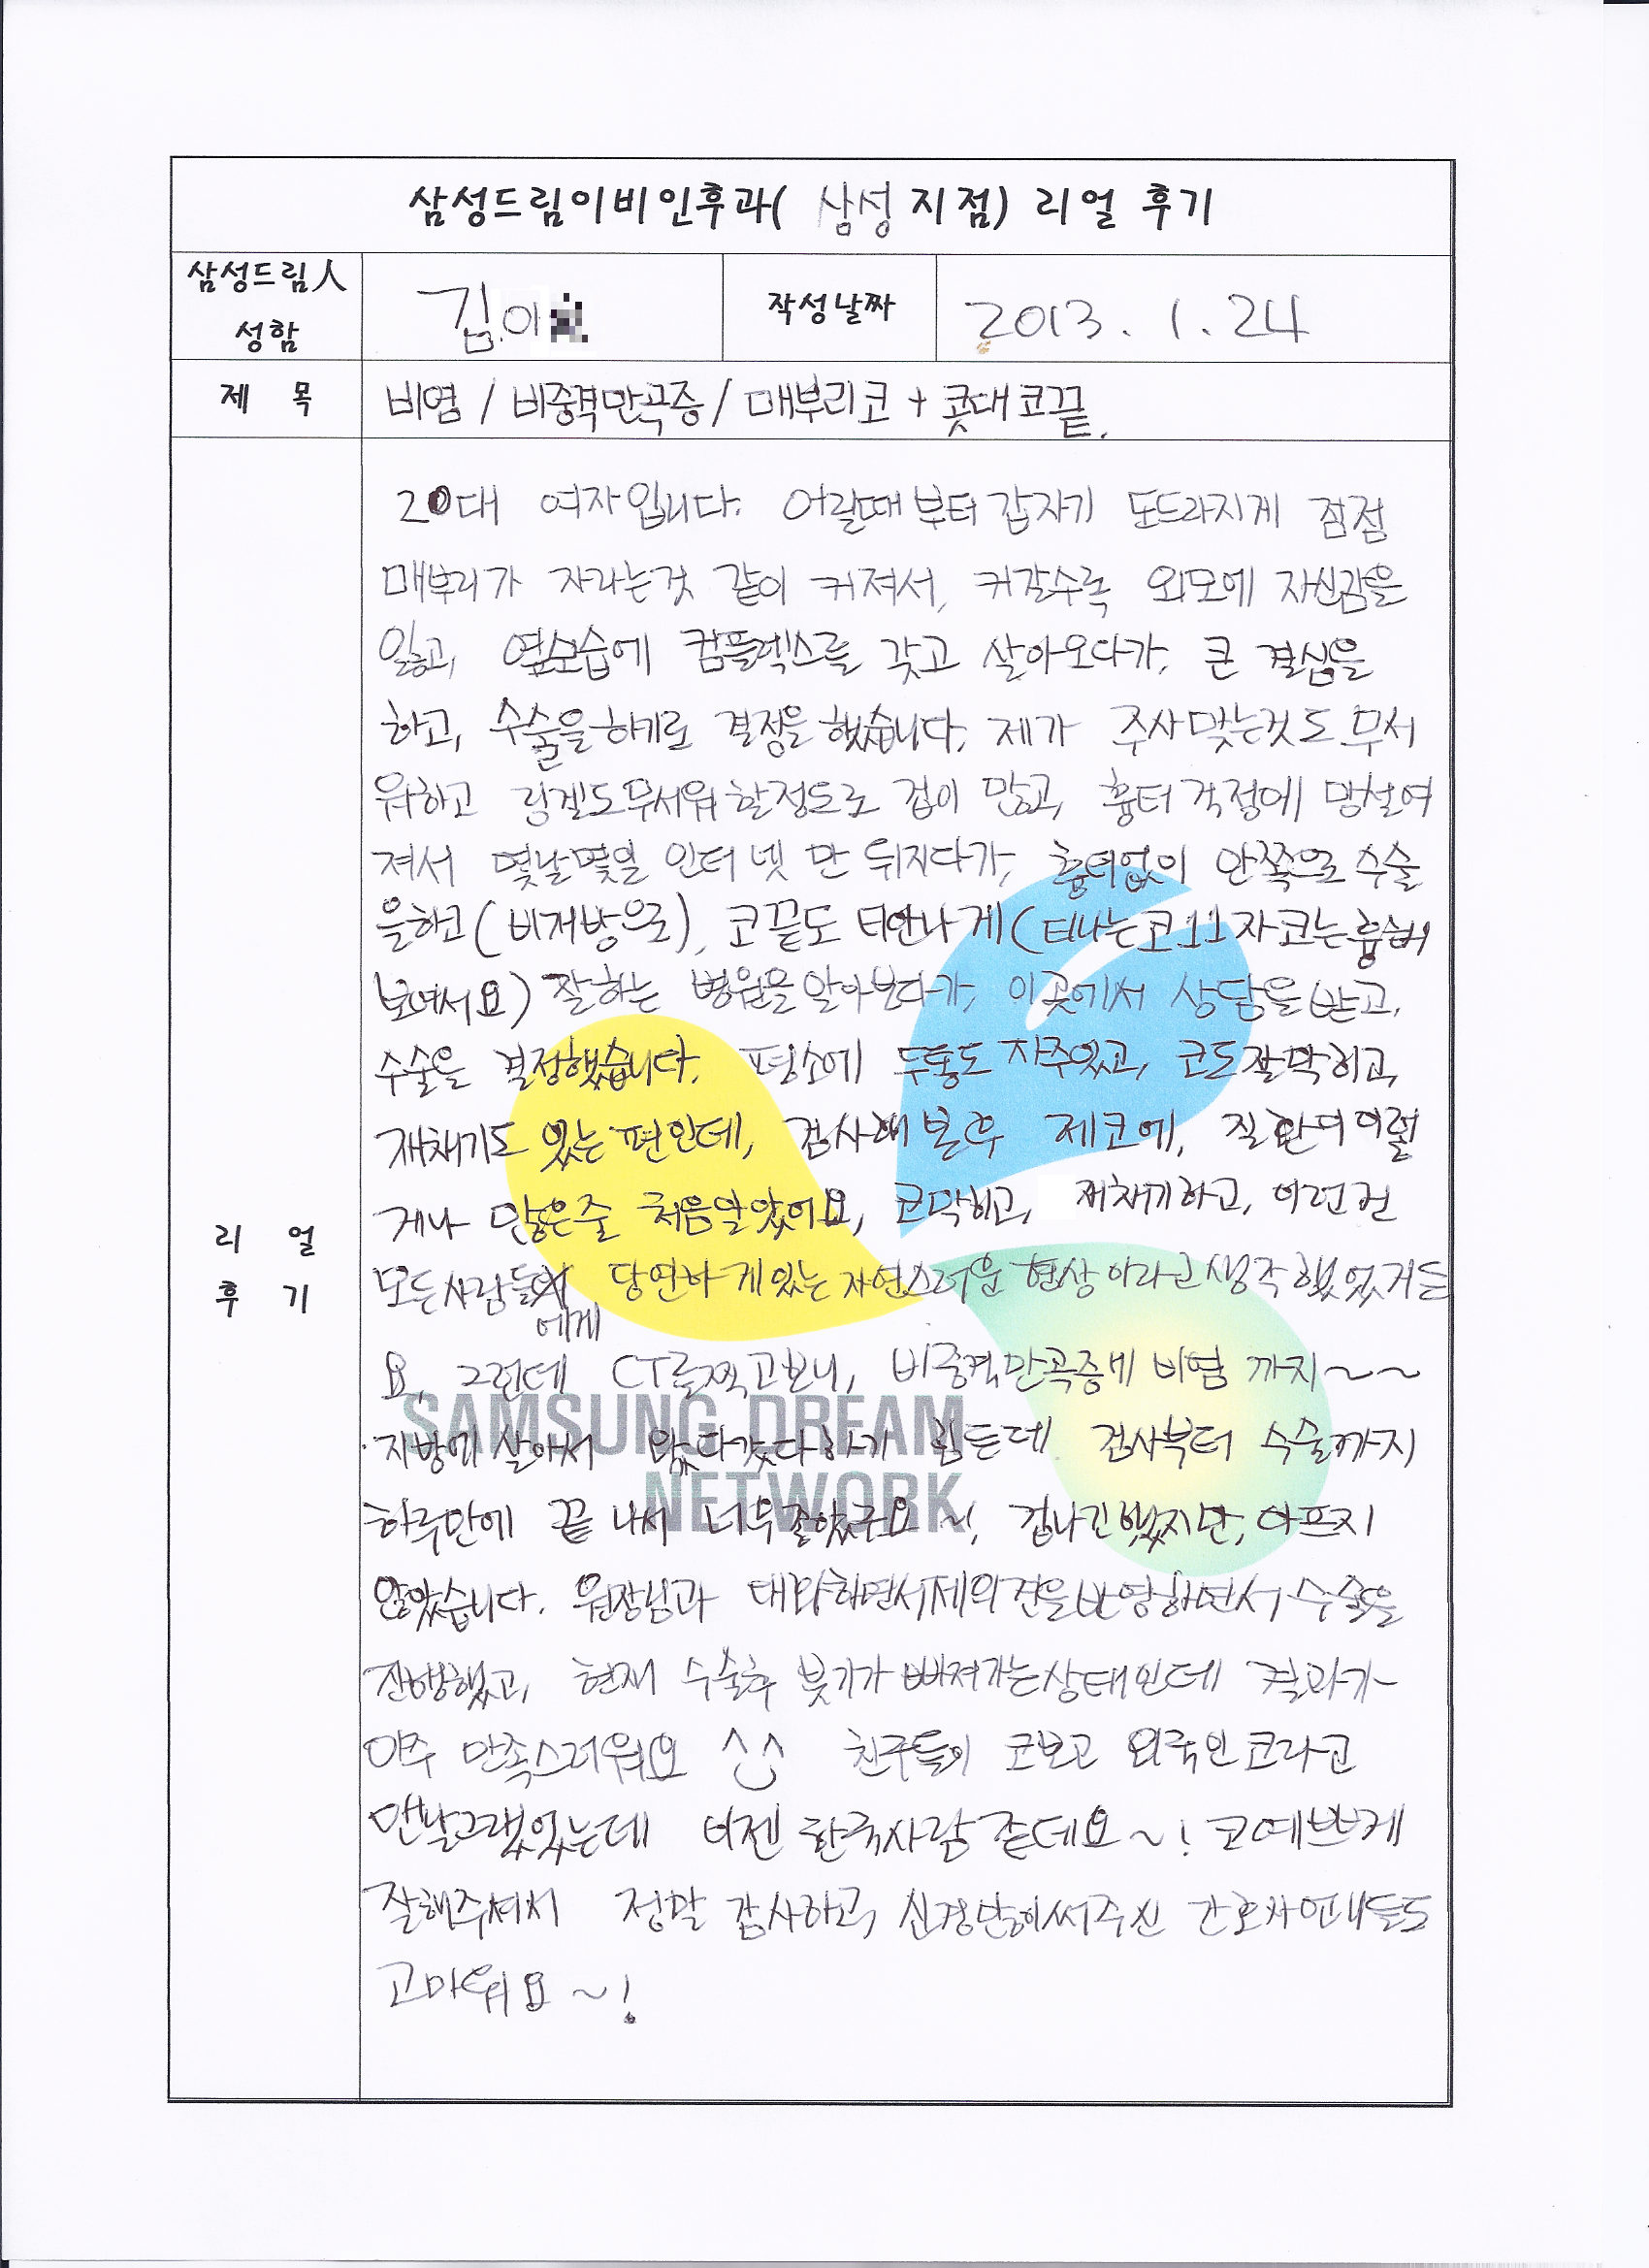 삼성드림이비인후과( 삼성 지점) 리얼 후기
삼성드림人
성함
김이
작성날짜
2013. 1. 24
제 목
비염 / 비중격만곡증 / 매부리코 + 콧대코끝.
20대 여자입니다. 어릴때부터 갑자기 도드라지게 점점
매부리가 자라는것 같이 커져서, 커갈수록 외모에 자신감을
잃고, 옆모습에 컴플렉스를 갖고 살아오다가, 큰 결심을
하고, 수술을하기로 결정을했습니다. 제가 주사맞는것도 무서
워하고 링겔도무서워할정도로 겁이 많고, 흉터걱정에 망설여
져서 몇날몇일 인터넷만 뒤지다가, 흉터없이 안쪽으로 수술
을하고(비개방으로), 코끝도 티안나게(티나는코11자코는흉
보여서요) 잘하는 병원을알아보다가, 이곳에서 상담을받고,
수술을 결정했습니다. 평소에 두통도 자주있고, 코도잘막히고,
재채기도 있는편인데, 검사해본후 제코에, 질환이이렇
게나 많은줄 처음알았어요, 코막히고, 재채기하고, 이런건
모든사람들 당연하게있는자연스러운현상이라고생각했었거든
에게
요. 그런데 CT를찍고보니, 비중격만곡증에 비염까지~~
지방에살아서 왔다갔다하기 힘든데 검사부터 수술까지
하루만에 끝나서 너무좋았구요~! 겁나긴했지만, 아프지
않았습니다. 원장님과 대화하면서제의견을반영하면서수술을
진행했고, 현재 수술후 붓기가 빠져가는상태인데 결과가
아주 만족스러워요 ^^ 친구들이 코보고 외국인코라고
맨날그랬었는데 이젠 한국사람같데요~! 코예쁘게
잘해주셔서 정말 감사하고, 신경많이써주신 간호사언니들도
고마워요~!
리 얼
후 기
SAMSUNG DREAM
NETWORK